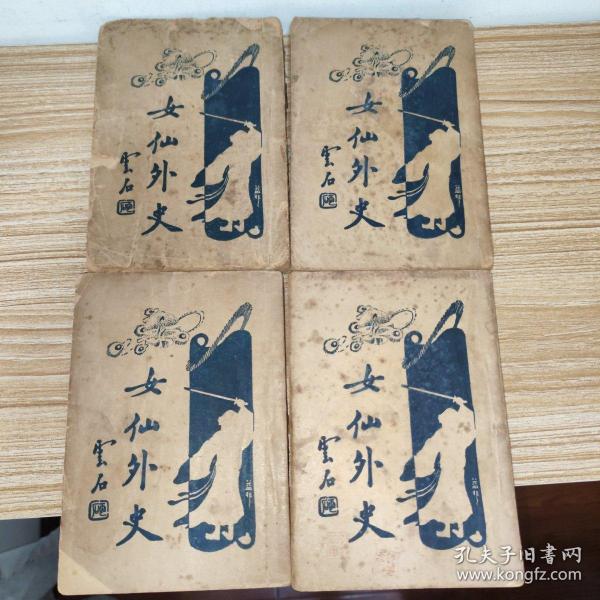 女仙外史
雲石
女仙外史
雲石
女仙外史
雲石
女仙外史
雲石
孔夫子旧书网
www.kongfz.com